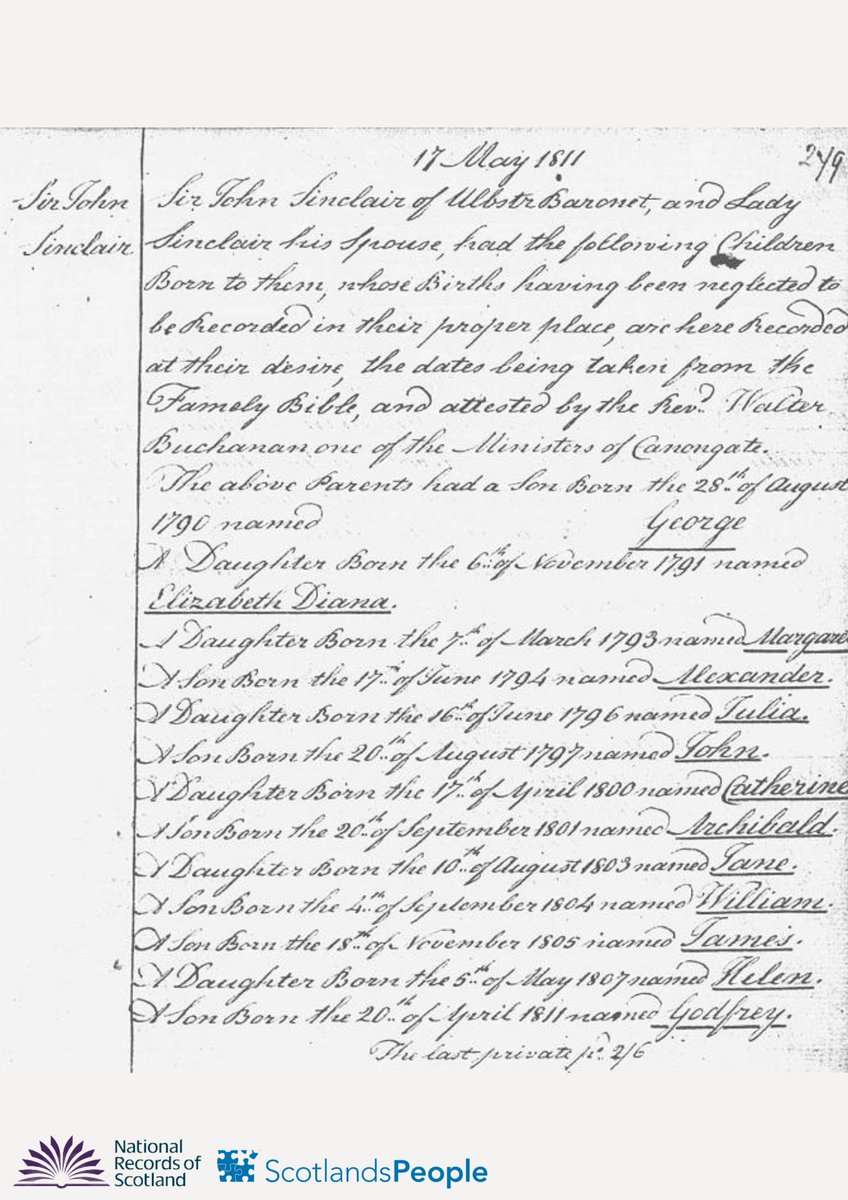 17 May 1811
249
Sir John
Sinclair
Sir John Sinclair of Ulbstr Baronet, and Lady
Sinclair his Spouse, had the following Children
Born to them, whose Births having been neglected to
be Recorded in their proper place, are here Recorded
at their desire, the dates being taken from the
Famely Bible, and attested by the Revd. Walter
Buchanan one of the Ministers of Canongate.
The above Parents had a Son Born the 28th of August
1790 named George
A Daughter Born the 6th of November 1791 named
Elizabeth Diana.
A Daughter Born the 7th of March 1793 named Margare
A Son Born the 17th of June 1794 named Alexander.
A Daughter Born the 16th of June 1796 named Julia.
A Son Born the 20th of August 1797 named John.
A Daughter Born the 17th of April 1800 named Catherine
A Son Born the 20th of September 1801 named Archibald.
A Daughter Born the 10th of August 1803 named Jane.
A Son Born the 4th of September 1804 named William.
A Son Born the 18th of November 1805 named James.
A Daughter Born the 5th of May 1807 named Helen.
A Son Born the 20th of April 1811 named Godfrey.
The last private pd. 2/6
National
Records of
Scotland
ScotlandsPeople